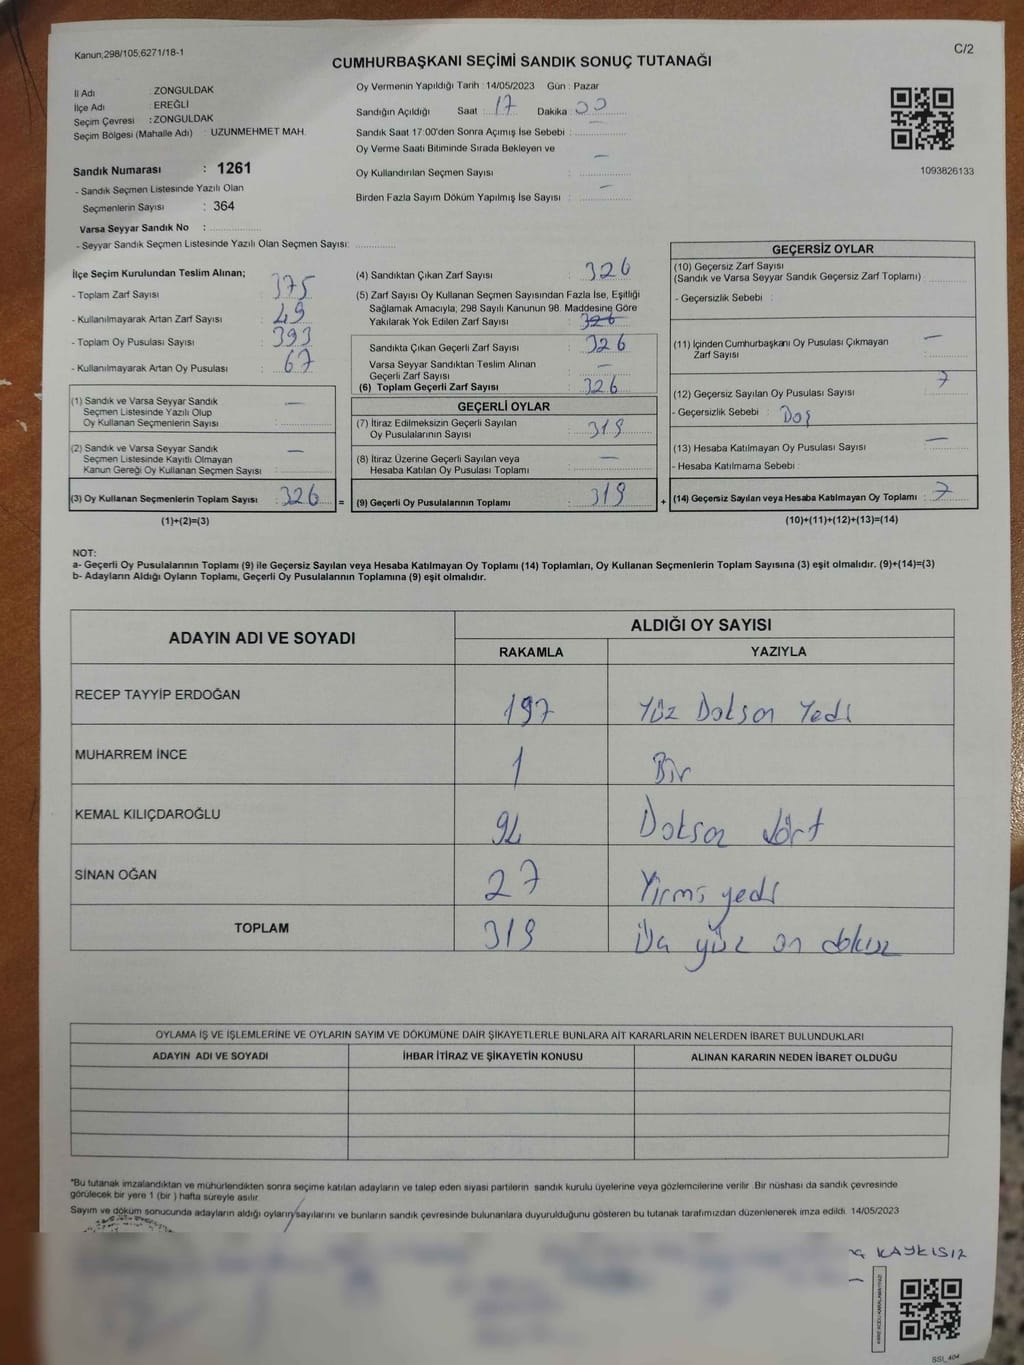 Kanun;298/105;6271/18-1
C/2
CUMHURBAŞKANI SEÇİMİ SANDIK SONUÇ TUTANAĞI
İl Adı : ZONGULDAK
İlçe Adı : EREĞLİ
Seçim Çevresi : ZONGULDAK
Seçim Bölgesi (Mahalle Adı) : UZUNMEHMET MAH.
Sandık Numarası : 1261
- Sandık Seçmen Listesinde Yazılı Olan
Seçmenlerin Sayısı : 364
Varsa Seyyar Sandık No :
- Seyyar Sandık Seçmen Listesinde Yazılı Olan Seçmen Sayısı:
Oy Vermenin Yapıldığı Tarih : 14/05/2023 Gün : Pazar
Sandığın Açıldığı Saat : 17 Dakika : 00
Sandık Saat 17:00'den Sonra Açımış İse Sebebi : —
Oy Verme Saati Bitiminde Sırada Bekleyen ve
Oy Kullandırılan Seçmen Sayısı : —
Birden Fazla Sayım Döküm Yapılmış İse Sayısı : —
1093826133
İlçe Seçim Kurulundan Teslim Alınan;
- Toplam Zarf Sayısı : 375
- Kullanılmayarak Artan Zarf Sayısı : 49
- Toplam Oy Pusulası Sayısı : 393
- Kullanılmayarak Artan Oy Pusulası : 67
(1) Sandık ve Varsa Seyyar Sandık
Seçmen Listesinde Yazılı Olup
Oy Kullanan Seçmenlerin Sayısı : —
(2) Sandık ve Varsa Seyyar Sandık
Seçmen Listesinde Kayıtlı Olmayan
Kanun Gereği Oy Kullanan Seçmen Sayısı : —
(3) Oy Kullanan Seçmenlerin Toplam Sayısı : 326 =
(1)+(2)=(3)
(4) Sandıktan Çıkan Zarf Sayısı : 326
(5) Zarf Sayısı Oy Kullanan Seçmen Sayısından Fazla İse, Eşitliği
Sağlamak Amacıyla; 298 Sayılı Kanunun 98. Maddesine Göre
Yakılarak Yok Edilen Zarf Sayısı : 326
Sandıkta Çıkan Geçerli Zarf Sayısı : 326
Varsa Seyyar Sandıktan Teslim Alınan
Geçerli Zarf Sayısı : —
(6) Toplam Geçerli Zarf Sayısı : 326
GEÇERLİ OYLAR
(7) İtiraz Edilmeksizin Geçerli Sayılan
Oy Pusulalarının Sayısı : 319
(8) İtiraz Üzerine Geçerli Sayılan veya
Hesaba Katılan Oy Pusulası Toplamı : —
(9) Geçerli Oy Pusulalarının Toplamı : 319 +
GEÇERSİZ OYLAR
(10) Geçersiz Zarf Sayısı
(Sandık ve Varsa Seyyar Sandık Geçersiz Zarf Toplamı) :
- Geçersizlik Sebebi :
(11) İçinden Cumhurbaşkanı Oy Pusulası Çıkmayan
Zarf Sayısı : —
(12) Geçersiz Sayılan Oy Pusulası Sayısı : 7
- Geçersizlik Sebebi : Boş
(13) Hesaba Katılmayan Oy Pusulası Sayısı : —
- Hesaba Katılmama Sebebi :
(14) Geçersiz Sayılan veya Hesaba Katılmayan Oy Toplamı : 7
(10)+(11)+(12)+(13)=(14)
NOT:
a- Geçerli Oy Pusulalarının Toplamı (9) ile Geçersiz Sayılan veya Hesaba Katılmayan Oy Toplamı (14) Toplamları, Oy Kullanan Seçmenlerin Toplam Sayısına (3) eşit olmalıdır. (9)+(14)=(3)
b- Adayların Aldığı Oyların Toplamı, Geçerli Oy Pusulalarının Toplamına (9) eşit olmalıdır.
ADAYIN ADI VE SOYADI
ALDIĞI OY SAYISI
RAKAMLA YAZIYLA
RECEP TAYYİP ERDOĞAN 197 Yüz Doksan Yedi
MUHARREM İNCE 1 Bir
KEMAL KILIÇDAROĞLU 94 Doksan dört
SİNAN OĞAN 27 Yirmi yedi
TOPLAM 319 Üç yüz on dokuz
OYLAMA İŞ VE İŞLEMLERİNE VE OYLARIN SAYIM VE DÖKÜMÜNE DAİR ŞİKAYETLERLE BUNLARA AİT KARARLARIN NELERDEN İBARET BULUNDUKLARI
ADAYIN ADI VE SOYADI İHBAR İTİRAZ VE ŞİKAYETİN KONUSU ALINAN KARARIN NEDEN İBARET OLDUĞU
*Bu tutanak imzalandıktan ve mühürlendikten sonra seçime katılan adayların ve talep eden siyasi partilerin sandık kurulu üyelerine veya gözlemcilerine verilir .Bir nüshası da sandık çevresinde
görülecek bir yere 1 (bir ) hafta süreyle asılır.
Sayım ve döküm sonucunda adayların aldığı oyların sayılarını ve bunların sandık çevresinde bulunanlara duyurulduğunu gösteren bu tutanak tarafımızdan düzenlenerek imza edildi. 14/05/2023
KAYKISIZ
SSI_404